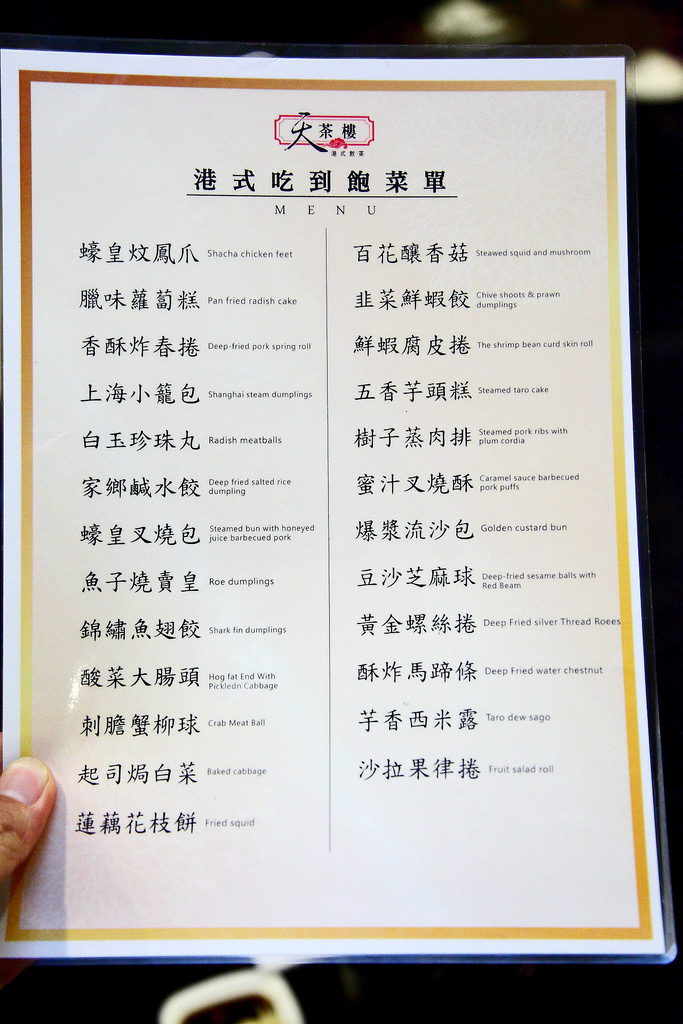 天茶樓
港式飲茶
港式吃到飽菜單
MENU
蠔皇炆鳳爪 Shacha chicken feet
臘味蘿蔔糕 Pan fried radish cake
香酥炸春捲 Deep-fried pork spring roll
上海小籠包 Shanghai steam dumplings
白玉珍珠丸 Radish meatballs
家鄉鹹水餃 Deep fried salted rice
dumpling
蠔皇叉燒包 Steamed bun with honeyed
juice barbecued pork
魚子燒賣皇 Roe dumplings
錦繡魚翅餃 Shark fin dumplings
酸菜大腸頭 Hog fat End With
Pickledn Cabbage
刺膽蟹柳球 Crab Meat Ball
起司焗白菜 Baked cabbage
蓮藕花枝餅 Fried squid
百花釀香菇 Steawed squid and mushroom
韭菜鮮蝦餃 Chive shoots & prawn
dumplings
鮮蝦腐皮捲 The shrimp bean curd skin roll
五香芋頭糕 Steamed taro cake
樹子蒸肉排 Steamed pork ribs with
plum cordia
蜜汁叉燒酥 Caramel sauce barbecued
pork puffs
爆漿流沙包 Golden custard bun
豆沙芝麻球 Deep-fried sesame balls with
Red Beam
黃金螺絲捲 Deep Fried silver Thread Roees
酥炸馬蹄條 Deep Fried water chestnut
芋香西米露 Taro dew sago
沙拉果律捲 Fruit salad roll